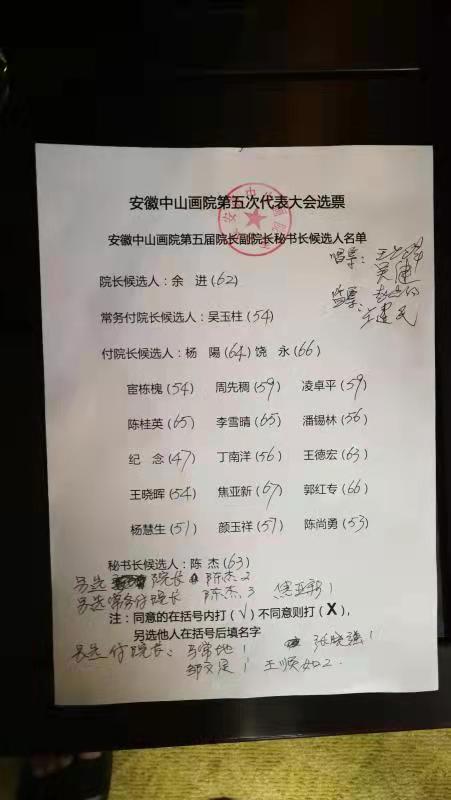 安徽中山画院第五次代表大会选票
安徽中山画院第五届院长副院长秘书长候选人名单
唱票:
监票:
院长候选人：余 进(62)
常务付院长候选人：吴玉柱(54)
付院长候选人：杨 陽(64) 饶 永(66)
宦栋槐(54) 周先稠(59) 凌卓平(59)
陈桂英(65) 李雪晴(65) 潘锡林(56)
纪 念(47) 丁南洋(56) 王德宏(63)
王晓晖(54) 焦亚新(67) 郭红专(66)
杨慧生(51) 颜玉祥(57) 陈尚勇(53)
秘书长候选人：陈 杰(63)
另选 院长 陈杰2
另选常务付院长 陈杰3 焦亚新1
注：同意的在括号内打(√)不同意则打(X),
另选他人在括号后填名字
另选付院长: 马常地1 张晓强1
邹文足1 王顺如2